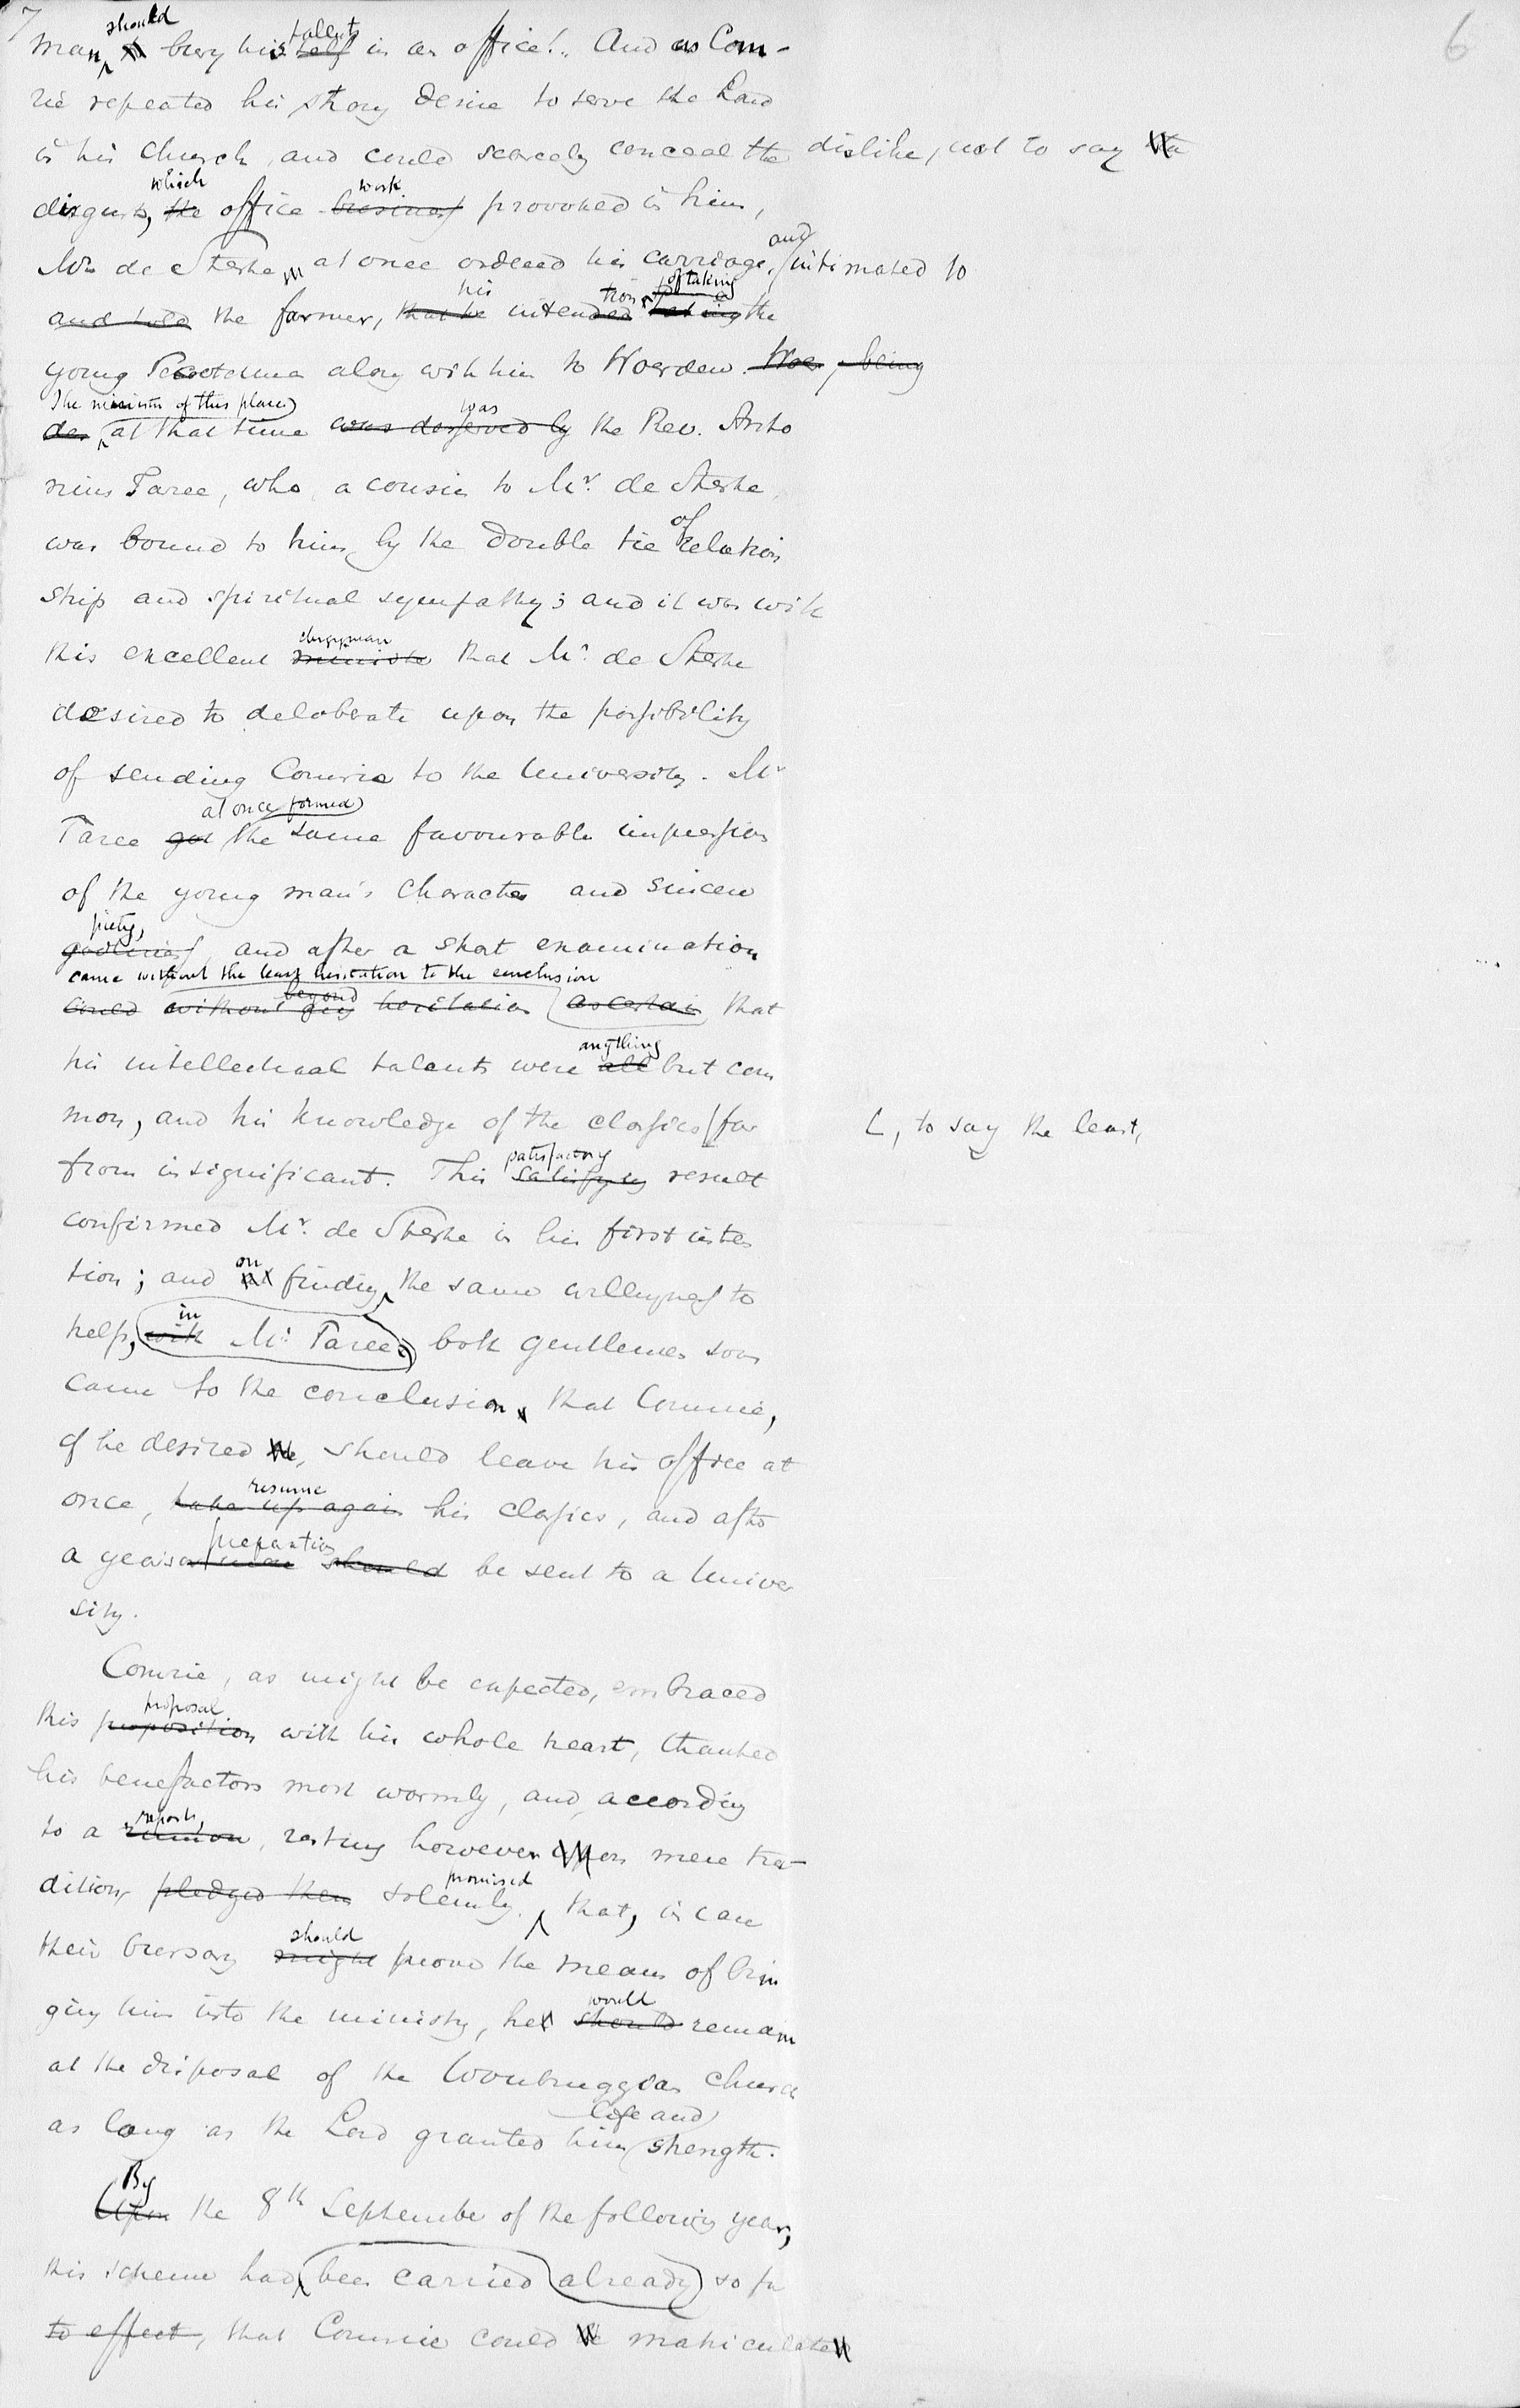 7 should talents 6
man, bury his self in an office!. And as Com-
rie repeated his strong desire to serve the Lord
in his church, and could scarcely conceal the dislike, not to say
which work
disgust, the office business provoked in him,
and
Mr. de Sterke at once ordered his carriage, intimated to
his tion of taking
and told the farmer, that he intended taking the
young Scotchman along with him to Woerden. Woer , being
The minister of this place was
den at that time was deserved by the Rev. Anto
nius Taree, who, a cousin to Mr. de Sterke,
of
was bound to him by the double tie relation
ship and spiritual sympathy; and it was with
clergyman
this excellent minister that Mr. de Sterke
desired to deloberate upon the possibility
of sending Comrie to the University. Mr
at once formed
Taree got the same favourable impression
of the young man's character and sincere
piety,
godliness, and after a short examination
came without the least hesitation to the conclusion
beyond
could without any hesitation ascertain that
anything
his intellectual talents were all but com
mon, and his knowledge of the classics far
, to say the least,
satisfactory
from insignificant. This satisfying result
confirmed Mr. de Sterke in his first inten
on
tion; and finding the same willingness to
in
help, with Mr. Taree, both gentlemen soon
came to the conclusion that Comrie,
if he desired , should leave his office at
resume
once, take up again his classics, and after
preparation
a year's should be sent to a Univer
sity.
Comrie, as might be expected, embraced
proposal
this proposition with his whole heart, thanked
his benefactors most warmly, and according
report,
to a rumour, resting however on mere tra-
promised
dition, pledged then solemnly. that, in case
should
their bursary might prove the means of brin
would
ging him into the ministry, he should remain
at the disposal of the Woubruggian church
life and
as long as the Lord granted him strength.
By
Upon the 8th September of the following year,
this scheme had been carried already so far
to effect, that Comrie could matriculate